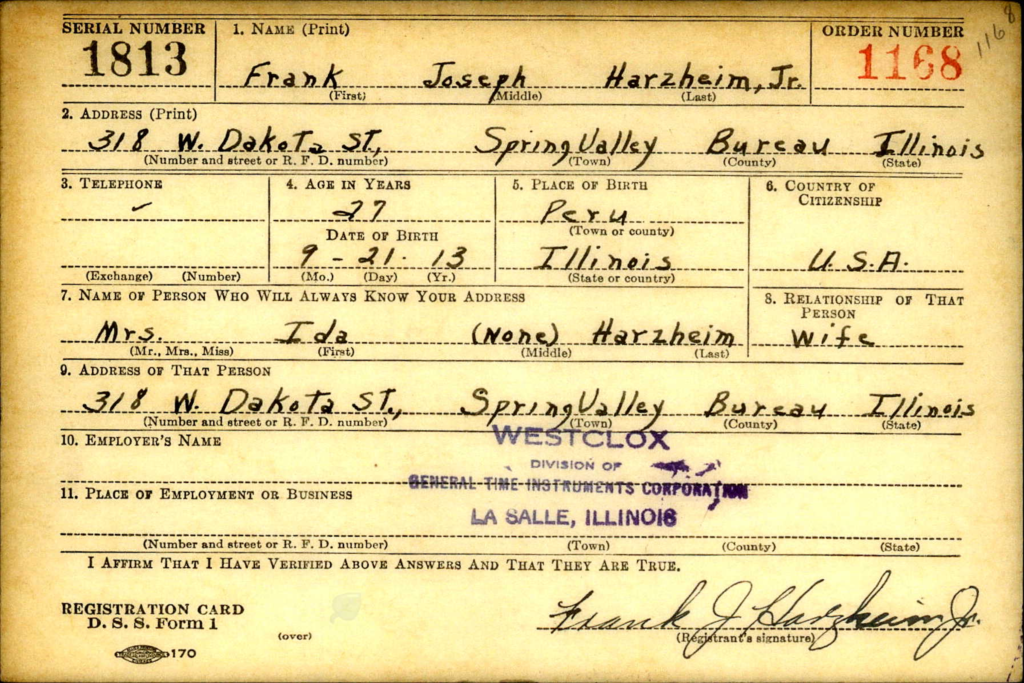 SERIAL NUMBER 1. NAME (Print) ORDER NUMBER
1813 Frank Joseph Harzheim, Jr. 1168 1168
(First) (Middle) (Last)
2. ADDRESS (Print)
318 W. Dakota St., Spring Valley Bureau Illinois
(Number and street or R. F. D. number) (Town) (County) (State)
3. TELEPHONE 4. AGE IN YEARS 5. PLACE OF BIRTH 6. COUNTRY OF CITIZENSHIP
– 27 Peru
(Town or county)
DATE OF BIRTH
9 - 21. 13 Illinois U.S.A.
(Exchange) (Number) (Mo.) (Day) (Yr.) (State or country)
7. NAME OF PERSON WHO WILL ALWAYS KNOW YOUR ADDRESS 8. RELATIONSHIP OF THAT PERSON
Mrs. Ida (None) Harzheim Wife
(Mr., Mrs., Miss) (First) (Middle) (Last)
9. ADDRESS OF THAT PERSON
318 W. Dakota St., Spring Valley Bureau Illinois
(Number and street or R. F. D. number) (Town) (County) (State)
10. EMPLOYER'S NAME
WESTCLOX
DIVISION OF
GENERAL TIME INSTRUMENTS CORPORATION
11. PLACE OF EMPLOYMENT OR BUSINESS
LA SALLE, ILLINOIS
(Number and street or R. F. D. number) (Town) (County) (State)
I AFFIRM THAT I HAVE VERIFIED ABOVE ANSWERS AND THAT THEY ARE TRUE.
REGISTRATION CARD
D. S. S. Form 1
(over)
Frank J Harzheim Jr.
(Registrant's signature)
170